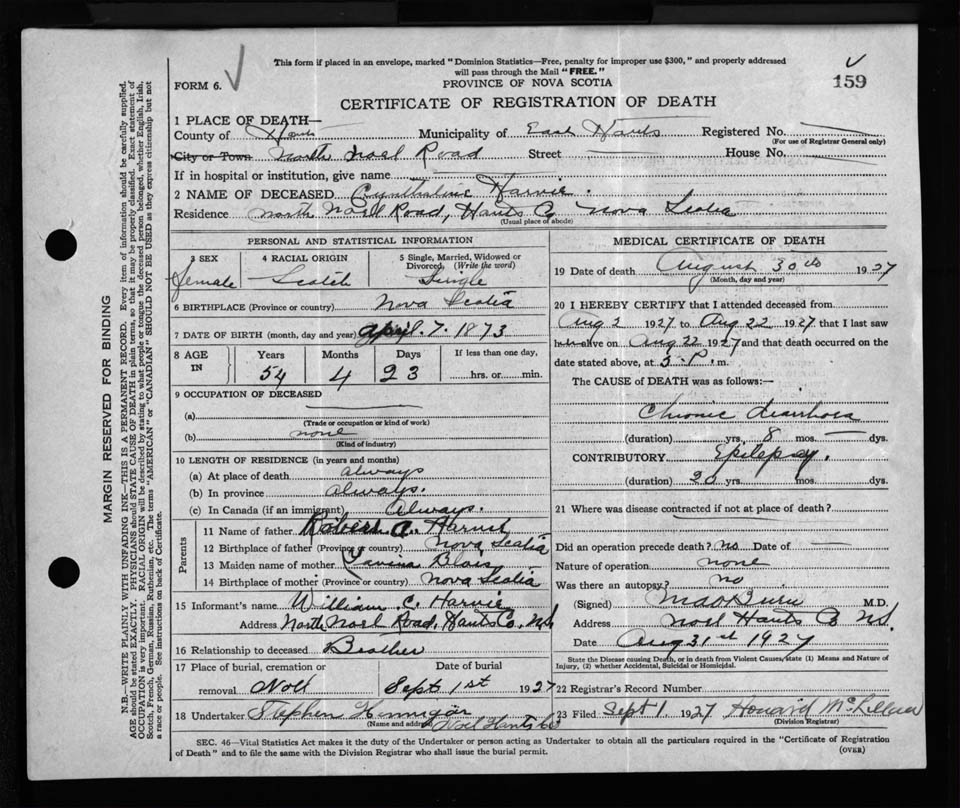 This form if placed in an envelope, marked "Dominion Statistics—Free, penalty for improper use $300," and properly addressed
will pass through the Mail "FREE."
FORM 6.
PROVINCE OF NOVA SCOTIA
159
CERTIFICATE OF REGISTRATION OF DEATH
1 PLACE OF DEATH—
County of Hants Municipality of East Hants Registered No.
(For use of Registrar General only)
City or Town North Noel Road Street House No.
If in hospital or institution, give name
2 NAME OF DECEASED Harvie.
Residence North Noel Road, Hants Co Nova Scotia
(Usual place of abode)
PERSONAL AND STATISTICAL INFORMATION
3 SEX 4 RACIAL ORIGIN 5 Single, Married, Widowed or
Divorced, (Write the word)
female Scotch Single
6 BIRTHPLACE (Province or country) Nova Scotia
7 DATE OF BIRTH (month, day and year) April. 7. 1873
8 AGE IN Years Months Days If less than one day,
54 4 23 hrs. or min.
9 OCCUPATION OF DECEASED
(a)
(Trade or occupation or kind of work)
(b) none
(Kind of industry)
10 LENGTH OF RESIDENCE (in years and months)
(a) At place of death always
(b) In province always.
(c) In Canada (if an immigrant) Always.
Parents
11 Name of father Robert A. Harvie
12 Birthplace of father (Province or country) Nova Scotia
13 Maiden name of mother Blois
14 Birthplace of mother (Province or country) Nova Scotia
15 Informant's name William C. Harvie
Address North Noel Road, Hants Co. N.S.
16 Relationship to deceased Brother
17 Place of burial, cremation or Date of burial
removal Noel Sept 1st 1927
18 Undertaker Stephen Hennigar
(Name and address) Noel Hants Co
MEDICAL CERTIFICATE OF DEATH
19 Date of death August 30th 1927
(Month, day and year)
20 I HEREBY CERTIFY that I attended deceased from
Aug 2 1927 to Aug 22 1927 that I last saw
h alive on Aug 22 1927 and that death occurred on the
date stated above, at 5 P. m.
The CAUSE OF DEATH was as follows:—
Chronic diarrhoea
(duration) yrs. 8 mos. — dys.
CONTRIBUTORY Epilepsy.
(duration) 20 yrs. mos. dys.
21 Where was disease contracted if not at place of death?
Did an operation precede death? no Date of —
Nature of operation none
Was there an autopsy? no
(Signed) M.D.
Address Noel Hants Co N.S.
Date Aug 31st 1927
State the Disease causing Death, or in death from Violent Causes, state (1) Means and Nature of
Injury, (2) whether Accidental, Suicidal or Homicidal.
22 Registrar's Record Number
23 Filed Sept 1 1927 Howard
(Division Registrar)
SEC. 46—Vital Statistics Act makes it the duty of the Undertaker or person acting as Undertaker to obtain all the particulars required in the "Certificate of Registration
of Death" and to file the same with the Division Registrar who shall issue the burial permit.
(OVER)
MARGIN RESERVED FOR BINDING
N.B.—WRITE PLAINLY WITH UNFADING INK—THIS IS A PERMANENT RECORD. Every item of information should be carefully supplied.
AGE should be stated EXACTLY. PHYSICIANS should STATE CAUSE OF DEATH in plain terms, so that it may be properly classified. Exact statement of
OCCUPATION is very important. RACIAL ORIGIN will be described by stating to what people or tongue the deceased person belonged, whether English, Irish,
Scotch, French, German, Russian, Ruthenian, etc. The terms "AMERICAN" or "CANADIAN" SHOULD NOT BE USED as they express citizenship but not
a race or people. See instructions on back of Certificate.